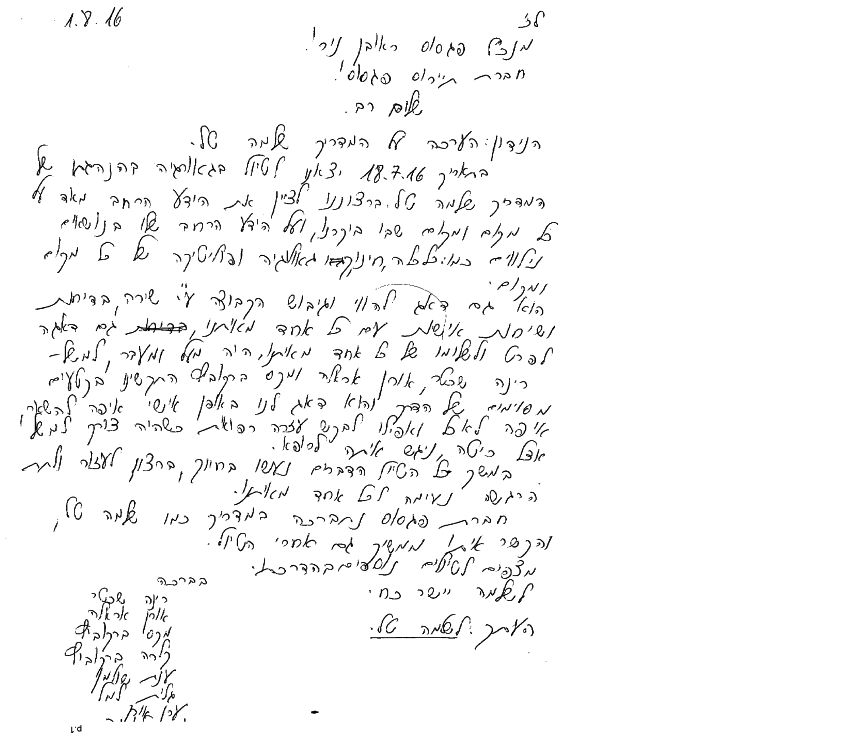 1.8.16
לכ'
מנכ"ל פגסוס ראובן נירי.
חברת תיירות פגסוס.
שלום רב.
הנידון: הערכה על המדריך שלמה טל.
בתאריך 18.7.16 יצאנו לטיול בגאורגיה בהנהגתו של
המדריך שלמה טל. ברצוננו לציין את הידע הרחב מאד על
כל מקום ומקום שבו ביקרנו, ועל הידע הרחב שלו בנושאים
נילווים כמו: כלכלה, חינוך, גאולוגיה ופוליטיקה של כל מקום
ומקום.
הוא גם דאג להווי וגיבוש הקבוצה ע"י שירה, בדיחות
ושיחות אישיות עם כל אחד מאיתנו, בדיחות גם דאגה
לפרט ולשלומו של כל אחד מאיתנו, היה מעל ומעבר, למשל-
רינה שכטר, אורן אראלה ומקס ברקוביץ התקשינו בקטעים
מסוימים של הדרך והוא דאג לנו באופן אישי איפה להשאר,
איפה לאכל ואפילו לבקש עזרה רפואית כשהיה צורך למשל
אצל כיטה, ניגש איתה לרופא.
במשך כל הטיול הדברים נעשו בחיוך, ברצון לעזור ולתת
הרגשה נעימה לכל אחד מאיתנו.
חברת פגסוס נתברכה במדריך כמו שלמה טל,
והקשר איתו ממשיך גם אחרי הטיול.
מצפים לטיולים נוספים בהדרכתו.
לשלמה יישר כח.
בברכה
רינה שכטר
אורן אראלה
מקס ברקוביץ
קלרה ברקוביץ
ענת שולמן
גלית למל
העתק: לשלמה טל.
P.1